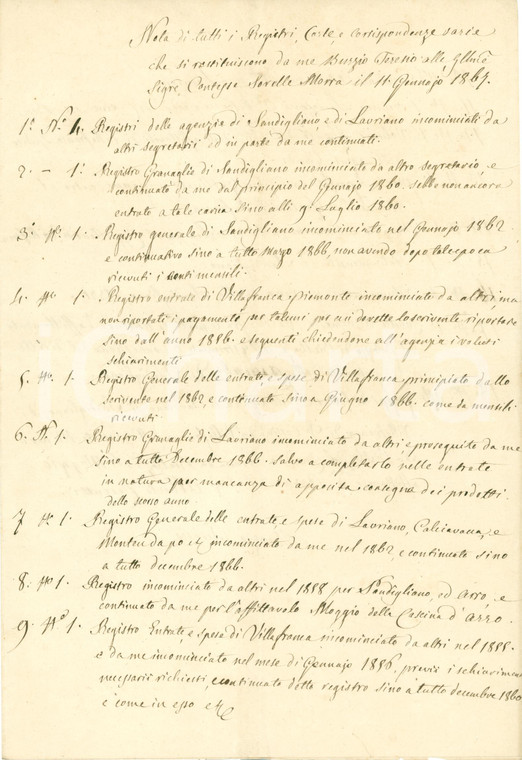 Nota di tutti i Registri, Carte, e corrispondenze varie
che si restituiscono da me Benzio Teresio alle Illme
Sigre Contesse Sorelle Morra il 11 Gennajo 1867.
1° N° 4. Registri delle agenzia di Sandigliano, e di Lauriano incominciati da
altri segretarii ed in parte da me continuati.
2. - 1° Registro Granaglie di Sandigliano incominciato da altro segretario, e
continuato da me dal principio del Gennajo 1860. sebbene non ancora
entrato a tale carica sino alli 9 Luglio 1860.
3° N° 1. Registro generale di Sandigliano incominciato nel Gennajo 1862
e continuativo sino a tutto Marzo 1866, non avendo dopo tale epoca
ricevuti i conti mensili.
4. N° 1. Registro entrate di Villafranca Piemonte incominciato da altri, ma
non riportati i pagamento per cui dovette lo scrivente riportare
sino dall'anno 1856. e seguenti chiedendone all'agenzia i voluti
schiarimenti
5. N° 1. Registro Generale delle entrate, e spese di Villafranca principiato dallo
scrivente nel 1862, e continuato sino a Giugno 1866. come da mensili
ricevuti
6. N° 1. Registro Granaglie di Lauriano incominciato da altri e proseguito da me
sino a tutto Decembre 1866. salvo a completarlo nelle entrate
in natura per mancanza di apposita consegna dei prodotti
dello scorso anno
7 N° 1. Registro Generale delle entrate, e spese di Lauriano, Calciavacca, e
Monteu da po incominciato da me nel 1862, e continuato sino
a tutto decembre 1866.
8. N° 1. Registro incominciato da altri nel 1858 per Sandigliano, ed Arro e
continuato da me per l'affittavolo Moggio della Cascina d'Arro.
9. N° 1. Registro Entrate e Spese di Villafranca incominciato da altri nel 1855
e da me incominciato nel mese di Gennajo 1856. previi i schiarimenti
necessarii richiesti, e continuato detto registro sino a tutto decembre 1860
e come in esso